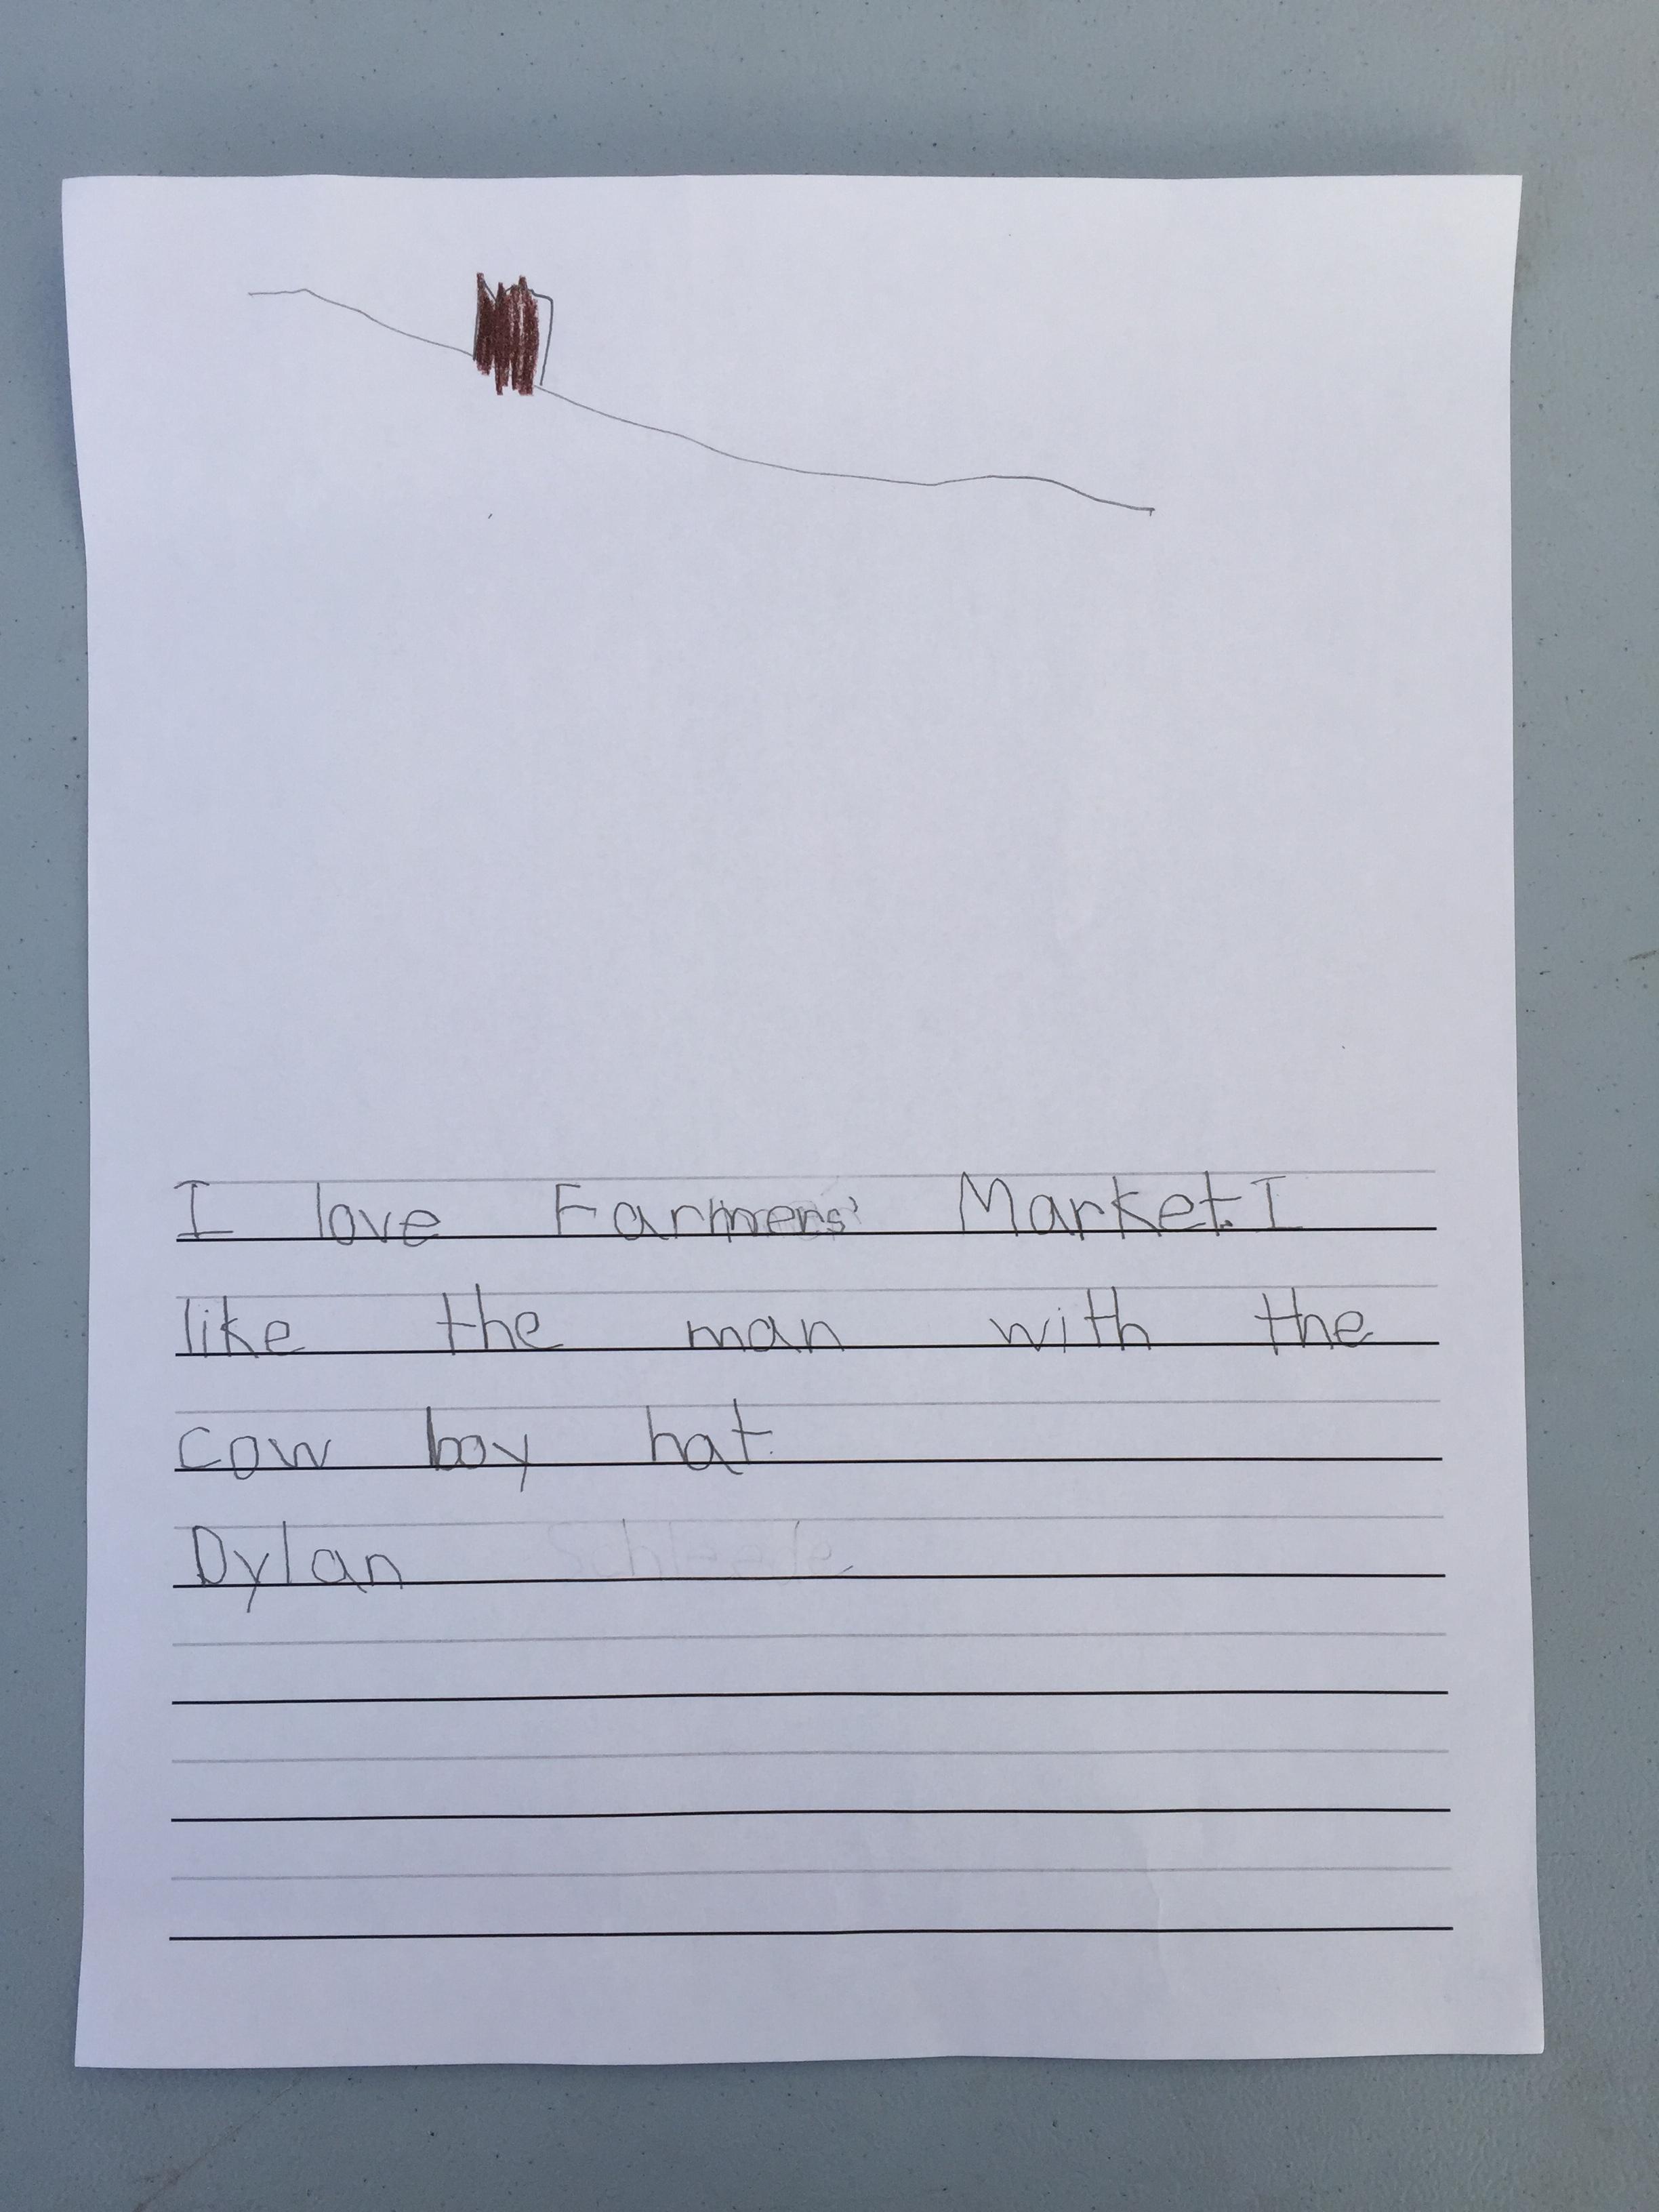 I love Farmers' Market. I
like the man with the
cow boy hat.
Dylan